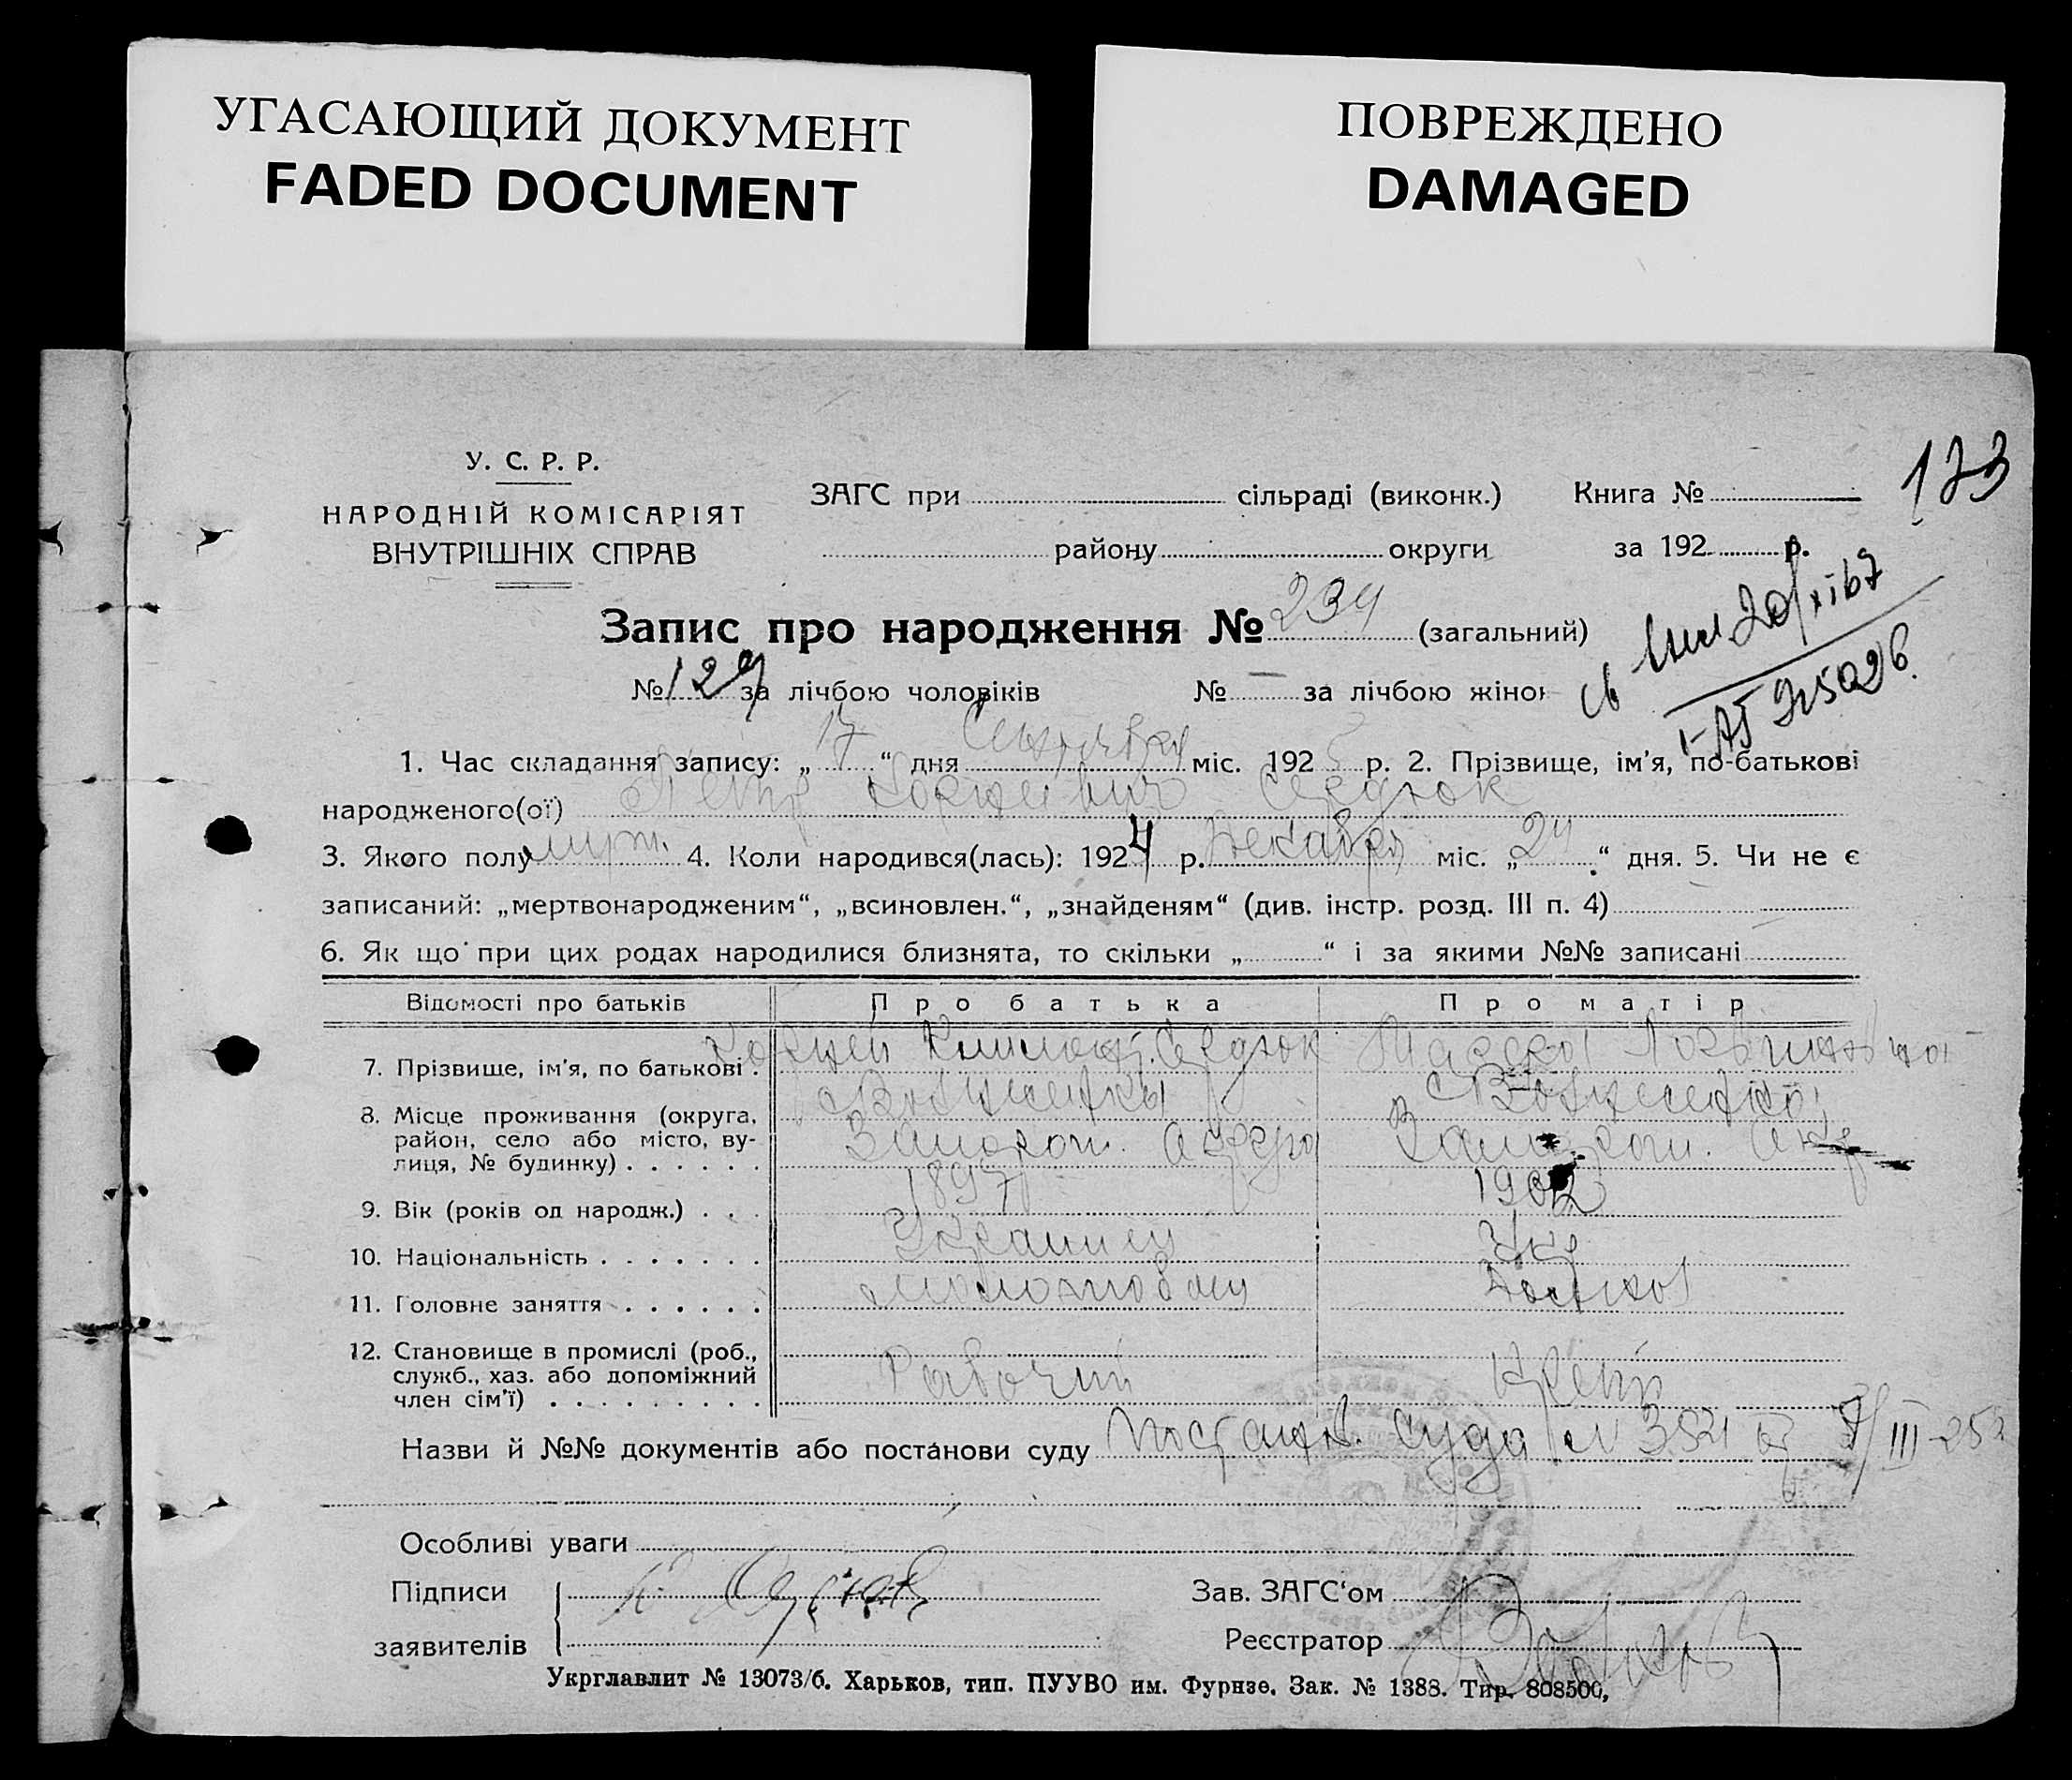 УГАСАЮЩИЙ ДОКУМЕНТ
FADED DOCUMENT
ПОВРЕЖДЕНО
DAMAGED
173
У. С. Р. Р.
НАРОДНІЙ КОМІСАРІЯТ
ВНУТРІШНІХ СПРАВ
ЗАГС при сільраді (виконк.) Книга №
району округи за 192 р.
Запис про народження № 234 (загальний)
№ 129 за лічбою чоловіків № — за лічбою жінок
20/XI 67
I-АЯ
1. Час складання запису: „17“ дня Сентября міс. 1925 р. 2. Прізвище, ім'я, по-батькові
народженого(ої) Петр Корнеевич Сердюк
3. Якого полу муж. 4. Коли народився(лась): 1924 р. Декабря міс. „24“ дня. 5. Чи не є
записаний: „мертвонародженим“, „всиновлен.“, „знайденям“ (див. інстр. розд. III п. 4)
6. Як що при цих родах народилися близнята, то скільки „ “ і за якими №№ записані
Відомості про батьків Про батька Про матір
7. Прізвище, ім'я, по батькові . Корней Климент. Сердюк
8. Місце проживання (округа,
район, село або місто, ву-
лиця, № будинку) . . . . . . Запорож. округа Запорож. Окр
9. Вік (років од народж.) . . . 1897 1902
10. Національність . . . . . . . Украинец Укр
11. Головне заняття . . . . . .
12. Становище в промислі (роб.,
служб., хаз. або допоміжний
член сім'ї) . . . . . . . . . Рабочий
Назви й №№ документів або постанови суду Постанов. суда № 3521 от 7/III-25
Особливі уваги
Підписи К Сердюк Зав. ЗАГС'ом
заявителів Реєстратор
Укрглавлит № 13073/б. Харьков, тип. ПУУВО им. Фурнзе. Зак. № 1388. Тир. 808500,